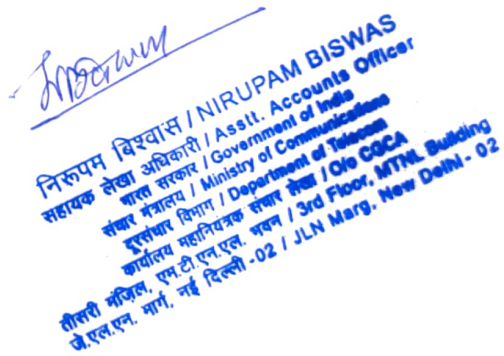 निरूपम बिश्वास / NIRUPAM BISWAS
सहायक लेखा अधिकारी / Asstt. Accounts Officer
भारत सरकार / Government of India
संचार मंत्रालय / Ministry of Communications
दूरसंचार विभाग / Department of Telecom
कार्यालय महानियंत्रक संचार लेखा / O/o CGCA
तीसरी मंज़िल, एम.टी.एन.एल. भवन / 3rd Floor, MTNL Building
जे.एल.एन. मार्ग, नई दिल्ली -02 / JLN Marg, New Delhi - 02